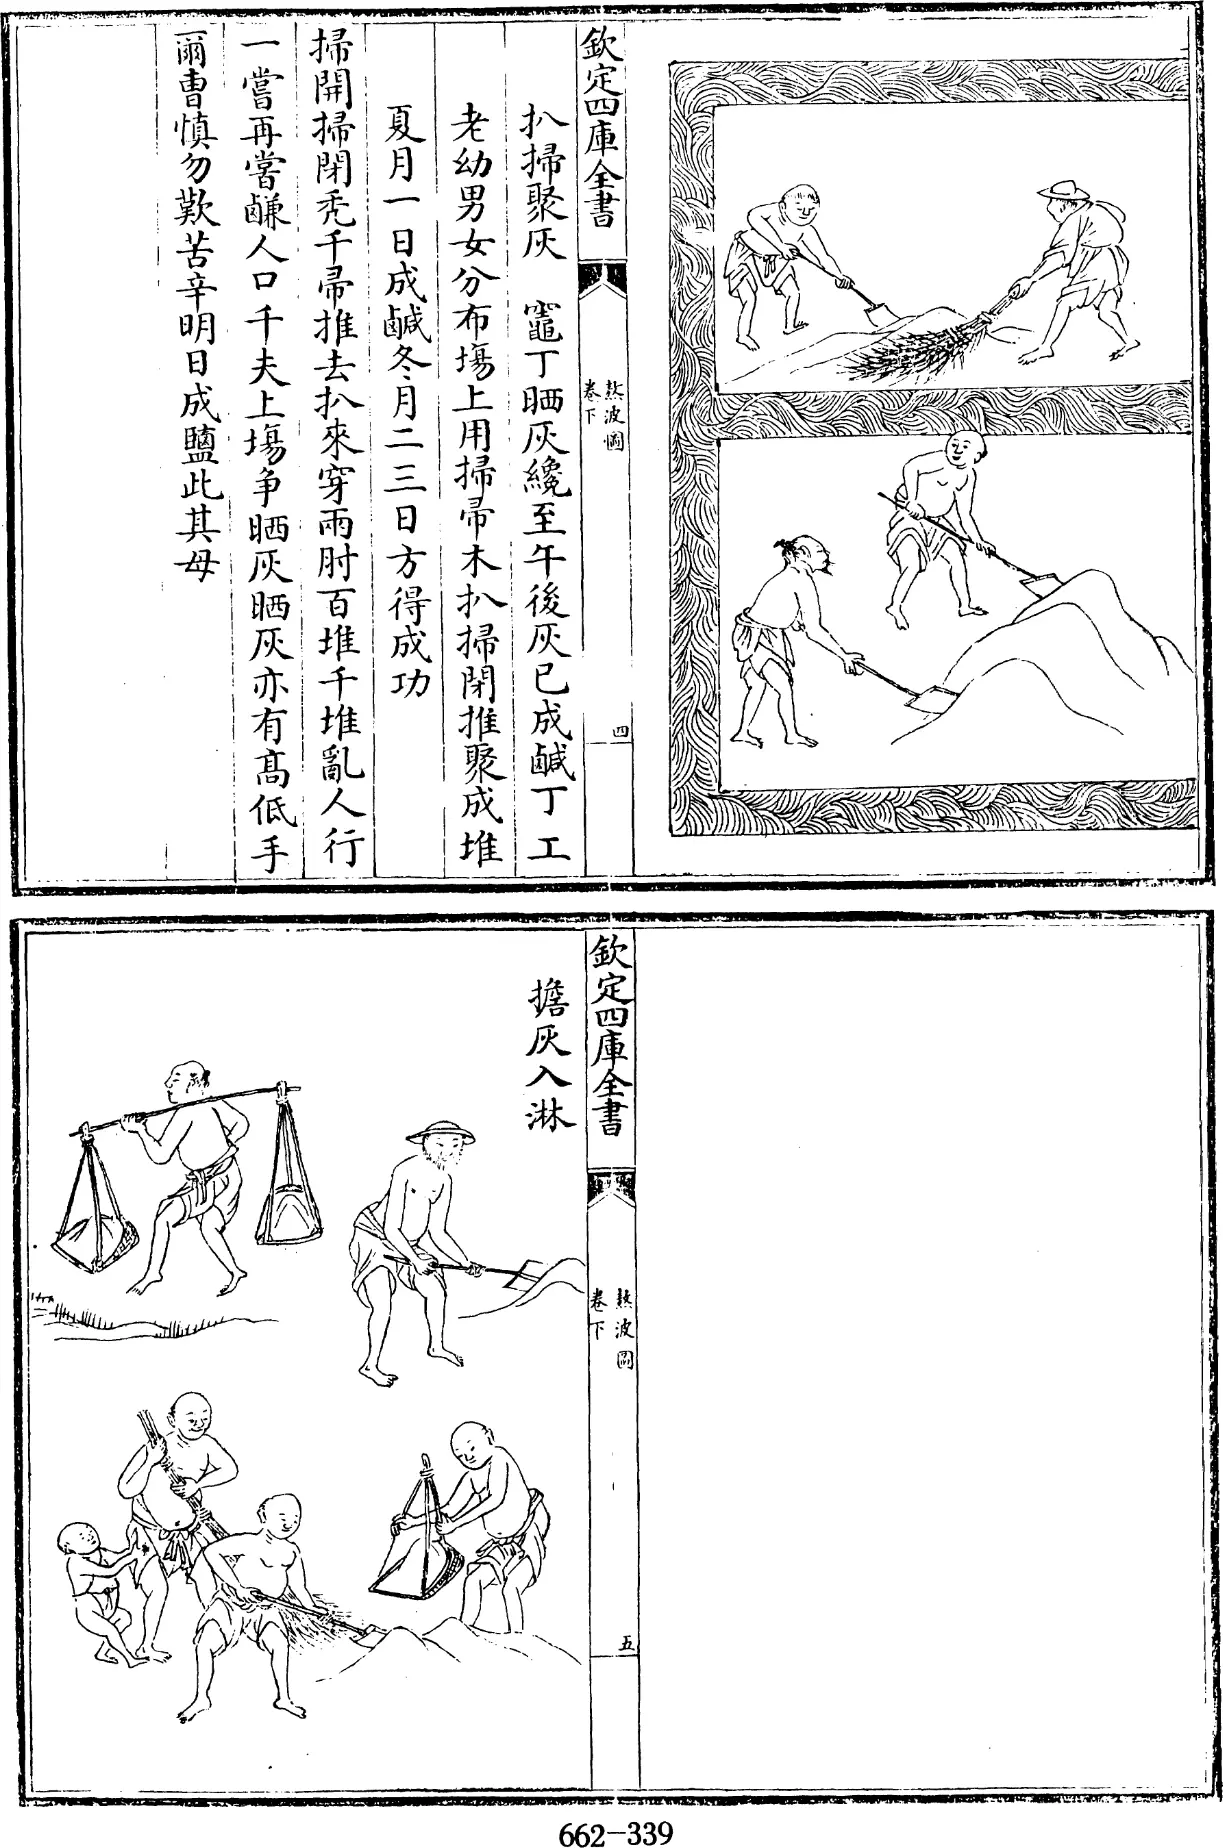 欽定四庫全書
熬波圖
卷下
四
扒掃聚灰　竈丁晒灰纔至午後灰已成鹹丁工
老幼男女分布塲上用掃帚木扒掃閉推聚成堆
夏月一日成鹹冬月二三日方得成功
掃開掃閉禿千帚推去扒來穿兩肘百堆千堆亂人行
一嘗再嘗鹻人口千夫上塲爭晒灰晒灰亦有髙低手
爾曹慎勿歎苦辛明日成鹽此其母
欽定四庫全書
熬波圖
卷下
五
擔灰入淋
662-339